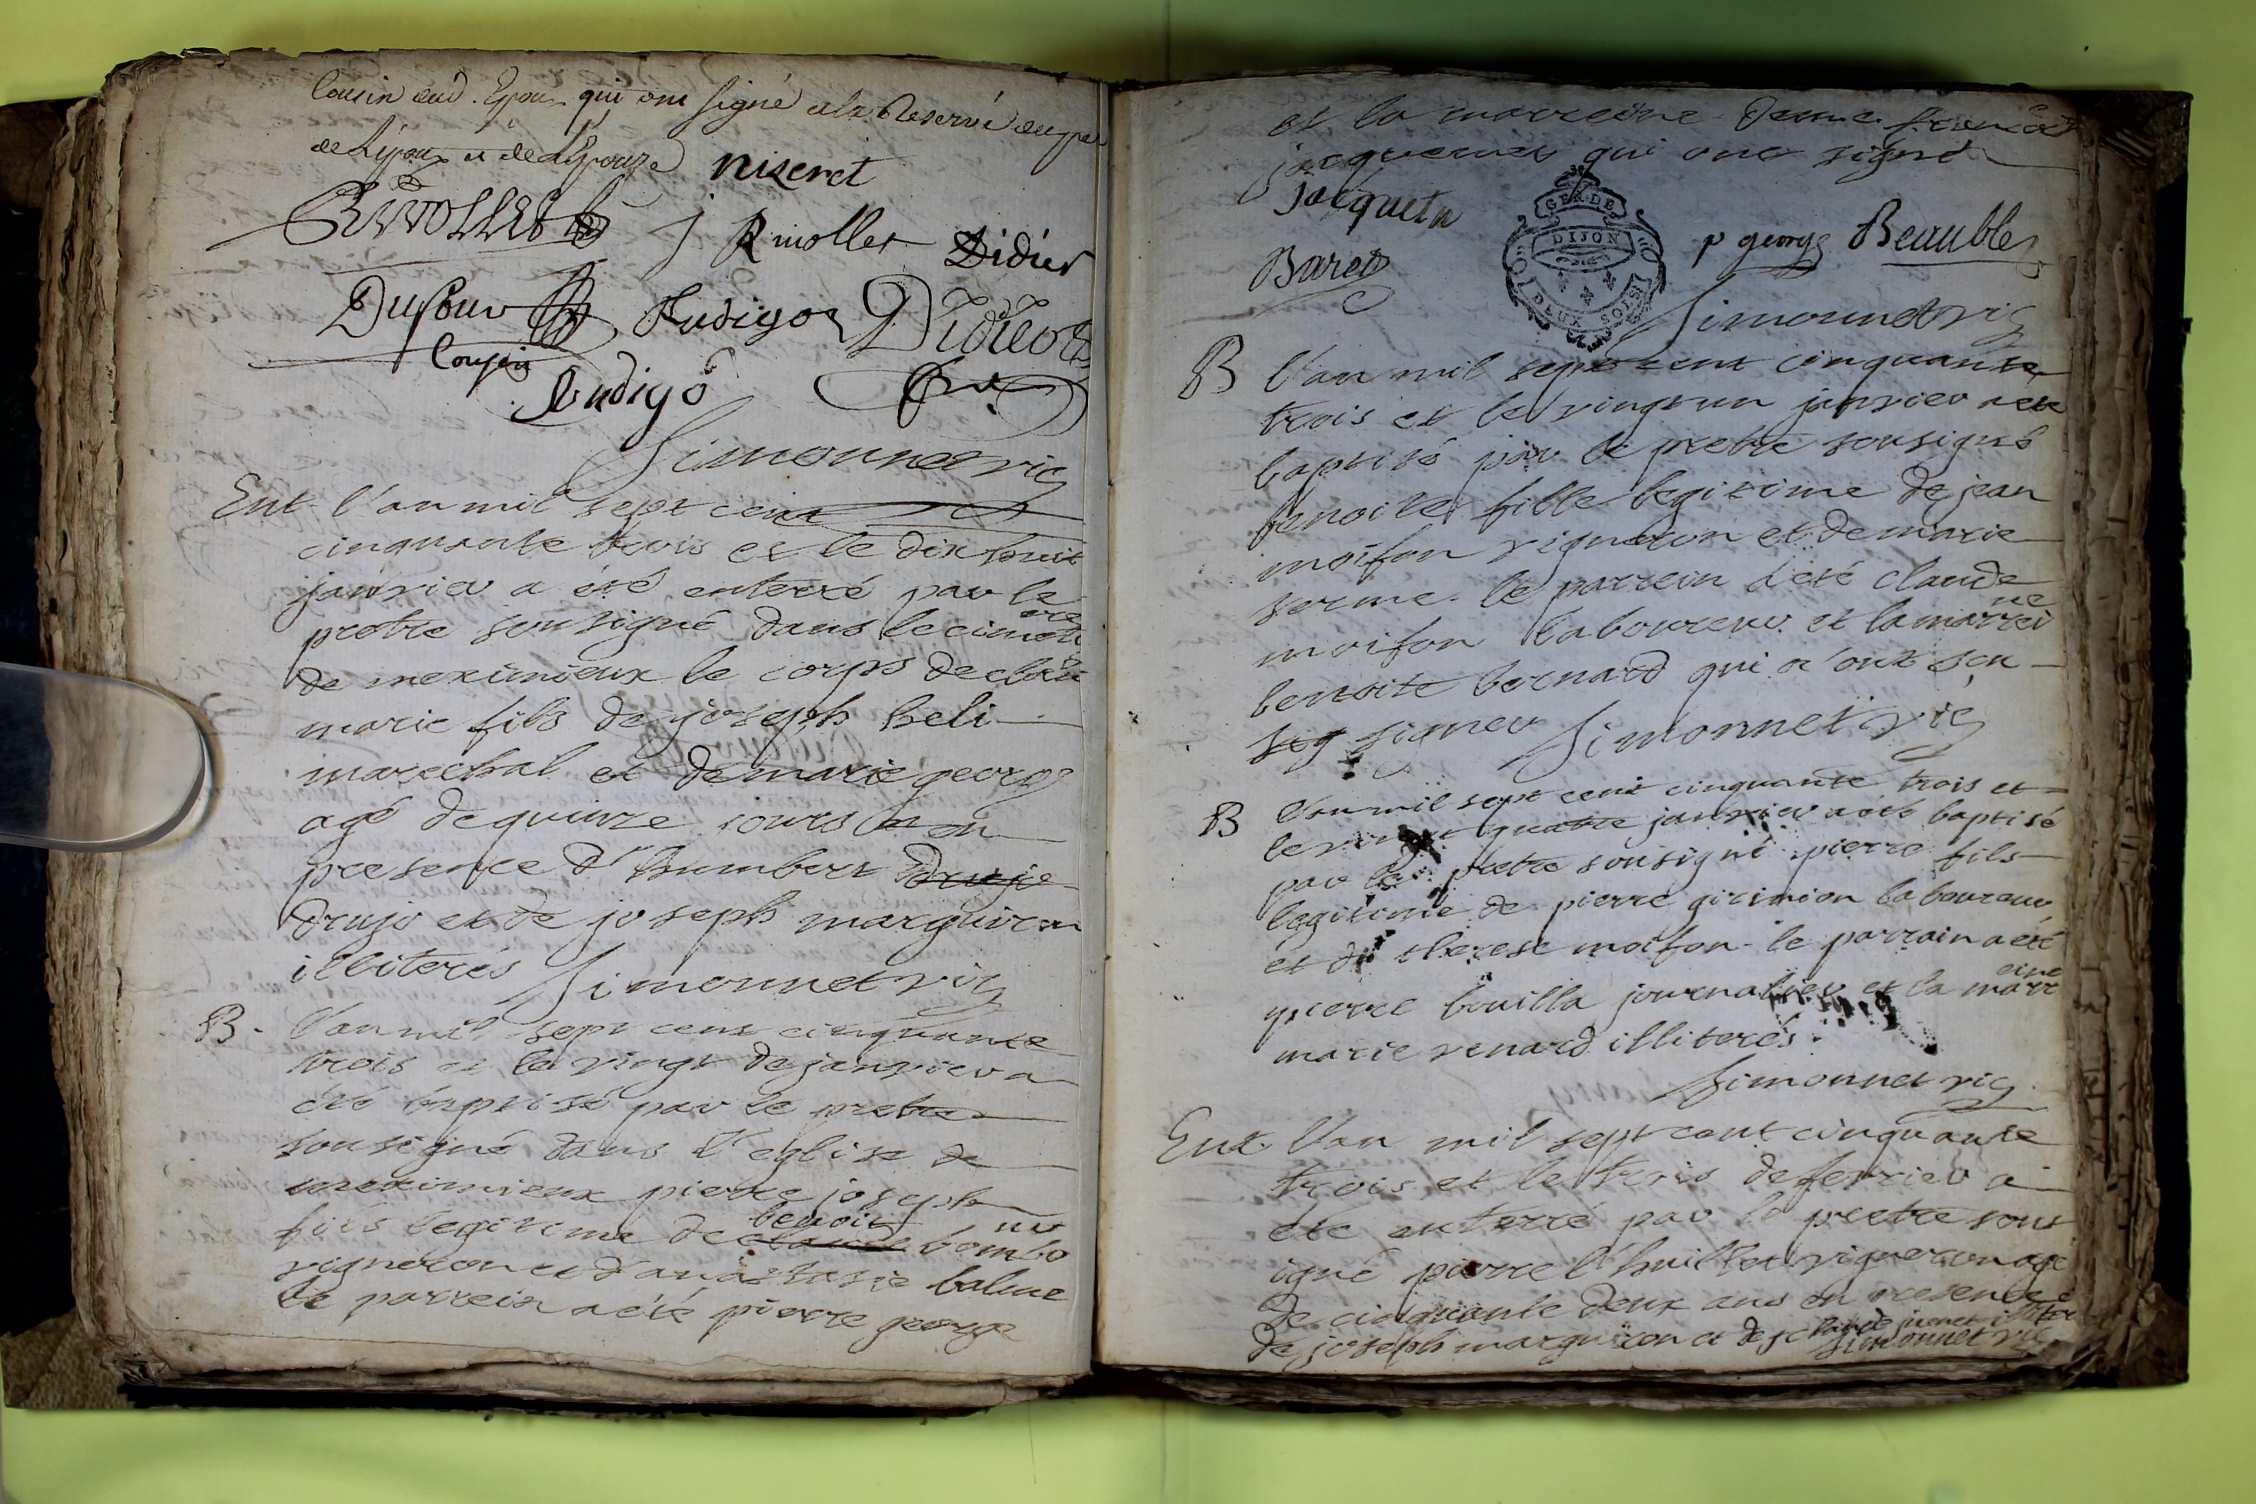 Cousin dud. Epoux qui ont signé a la Reserve du per
de L'epoux et de L'Epouze nizeret
j Rivollet Didier
Dufour Audigo Didier
Cousin
Audigo
Simonnet vic
Ent. l'an mil sept cent
cinquante trois et le dix huit
janvier a été enterré par le
pretre sousigné dans le cimetiere
de meximieux le corps de claude
marie fils de joseph heli
marechal et de marie george
agé de quinze jours en
presence d'humbert drujo
drujo et de joseph marguiron
illiterés Simonnet vic
B. l'an mil sept cent cinquante
trois et le vingt de janvier a
été baptisé par le pretre
sousigné dans l'eglise de
meximieux pierre joseph
fils legitime de claude benoit bombo
vigneron et d'anastasie balme
le parrein a été pierre george
et la marreine
jacquemet qui ont signé
jacquetn
GEN. DE DIJON
DEUX SOLS
p george Beaublez
Baret
Simonnet vic
B l'an mil sept cent cinquante
trois et le vingt un janvier a été
baptisé par le pretre sousigné
benoite fille legitime de jean
moifon vigneron et de marie
serme. le parrein a été claude
moifon laboureur et la marreine
benoite bernard qui n'ont seu
sig signer Simonnet vic
B l'an mil sept cent cinquante trois et
le vingt quatre janvier a été baptisé
par le pretre sousigné pierre fils
legitime de pierre girinion laboureur
et de therese moifon. le parrain a été
pierre bouilla journalier et la marreine
marie renard illiterés.
Simonnet vic
Ent. l'an mil sept cent cinquante
trois et le trois de fevrier a
été enterré par le pretre sous
igné pierre l'huillet vigneron agé
de cinquante deux ans en presence
de joseph marguiron et de claude juenet illiterés
Simonnet vic